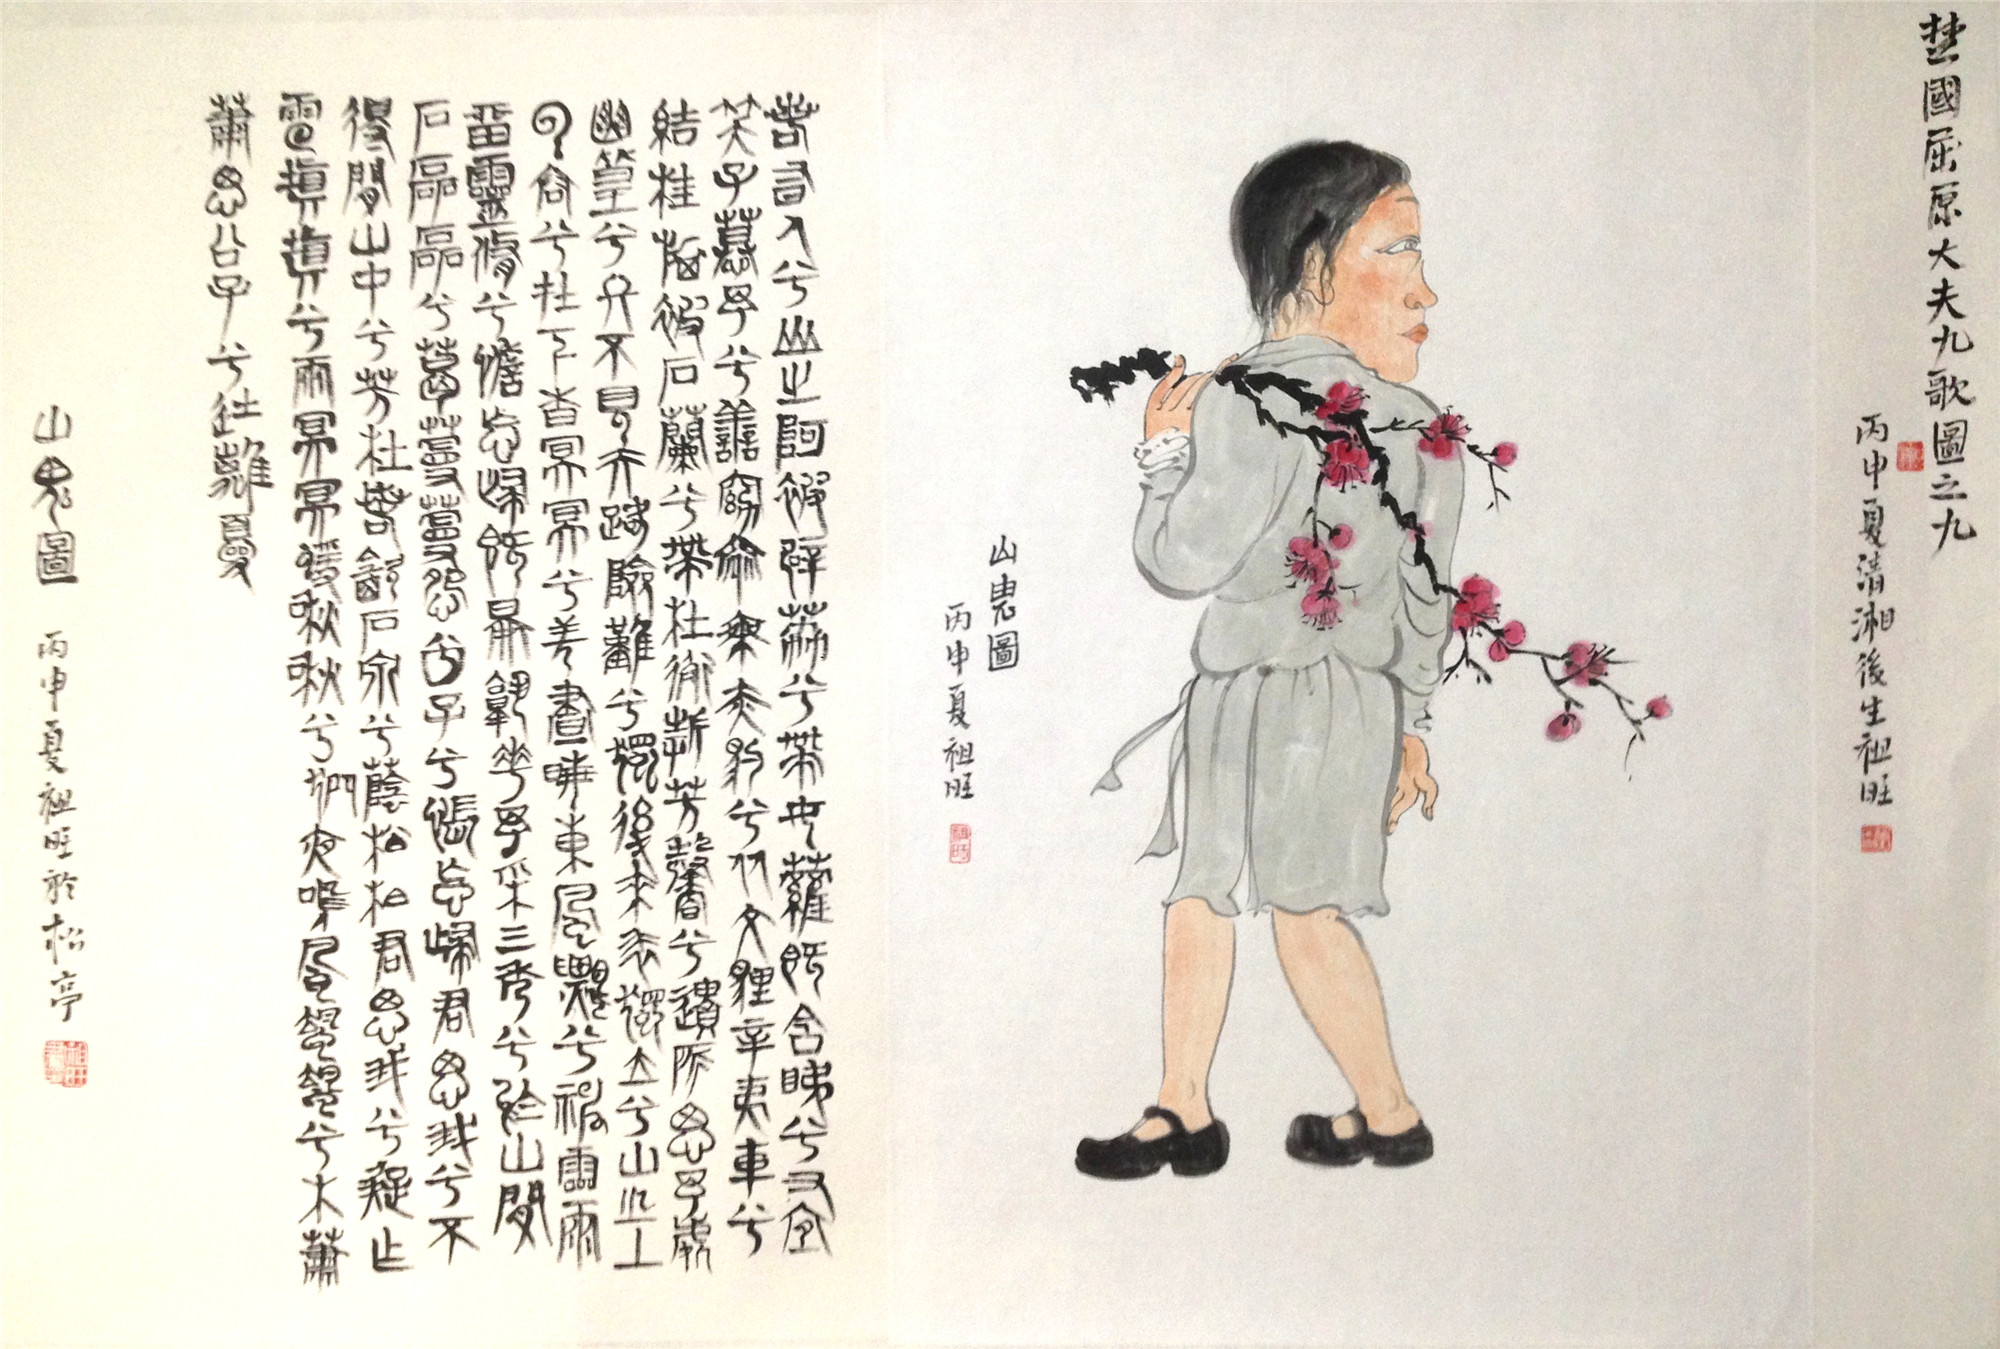 楚國屈原大夫九歌圖之九
丙申夏清湘後生祖旺
山鬼圖
丙申夏祖旺
若有人兮山之阿被薜荔兮帶女蘿既含睇兮又宜
笑子慕予兮善窈窕乘赤豹兮從文貍辛夷車兮
結桂旗被石蘭兮帶杜衡折芳馨兮遺所思予處
幽篁兮終不見天路險難兮獨後來表獨立兮山之上
云容兮在下杳冥冥兮羌晝晦東風飄兮神靈雨
留靈脩兮憺忘歸既晏孰華予采三秀兮於山間
石磊磊兮葛蔓蔓怨公子兮悵忘歸君思我兮不
得閒山中兮芳杜若飲石泉兮蔭松柏君思我兮疑作
雷填填兮雨冥冥猨啾啾兮狖夜鳴風颯颯兮木蕭
蕭思公子兮徒離憂
山鬼圖 丙申夏祖旺於松亭